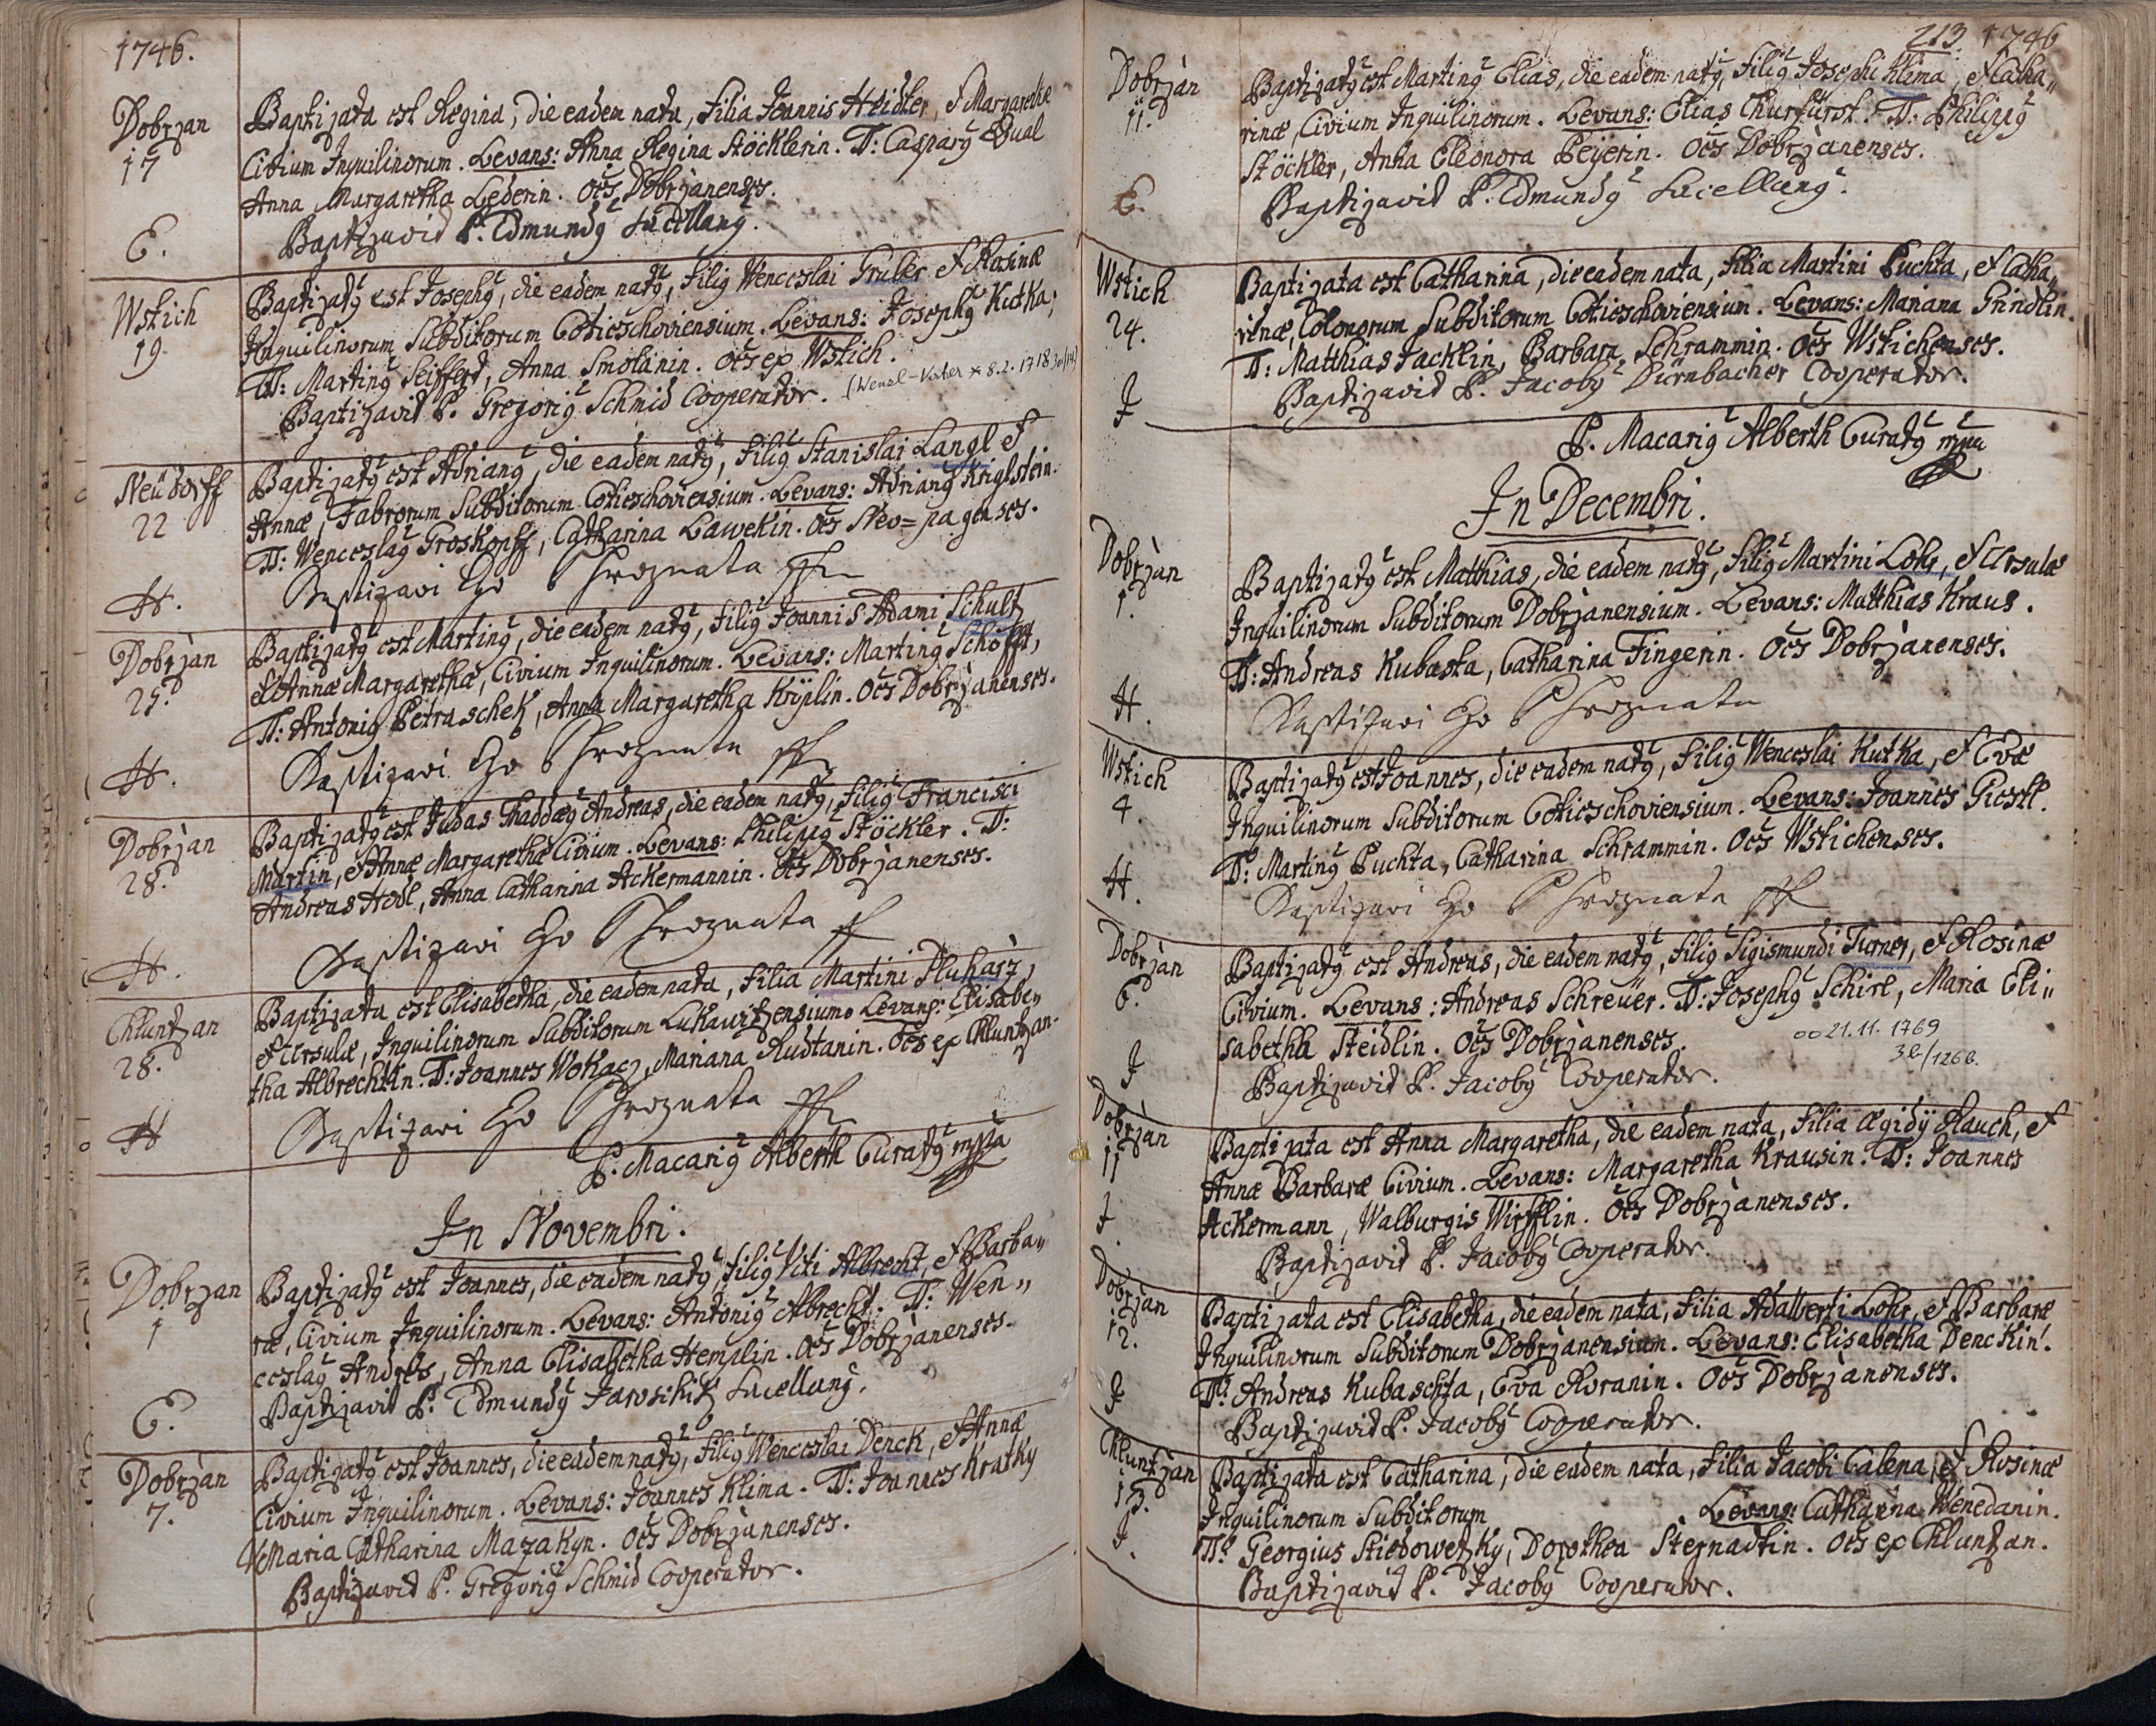 1746.
Dobrzan
17
Baptizata est Regina, die eadem nata, Filia Joannis Heidler, et Margarethæ
Civium Inquilinorum. Levans: Anna Regina Stöcklerin. T: Casparus Dual
Anna Margaretha Lederin. oēs Dobrzanenses.
Baptizavit P. Edmundus
E.
Wstich
19.
Baptizatus est Josephus, die eadem natus, Filius Wenceslai Gruber et Rosinæ
Inquilinorum Subditorum Cotieschoviensium. Levans: Josephus Kutka;
TT: Martinus Seiffert, Anna Smolanin. oēs ex Wstich.
Baptizavit P. Gregorius Schmid Cooperator. (Wenzl-Vater * 8.2.1718
Neüdorff
22
Baptizatus est Adrianus, die eadem natus, Filius Stanislai Langl et
Annæ, Fabrorum Subditorum Cotieschoviensium. Levans: Adrianus Kriglstein.
TT: Wenceslaus Groskopff, Catharina Lawekin. oēs Neo=pagenses.
Baptizavi Ego P Hroznata
H.
Dobrzan
25.
Baptizatus est Martinus, die eadem natus, Filius Joannis Adami Schultz
et Annæ Margarethæ, Civium Inquilinorum. Levans: Martinus Schöfft,
TT: Antonius Petraschek, Anna Margaretha Kriplin. oēs Dobrzanenses.
Baptizavi Ego P Hroznata
H.
Dobrzan
28.
Baptizatus est Judas Thaddæus Andreas, die eadem natus, Filius Francisci
Martin, et Annæ Margarethæ Civium. Levans: Philippus Stöckler. TT:
Andreas Hodl, Anna Catharina Ackermannin. oēs Dobrzanenses.
Baptizavi Ego P Hroznata
H.
Chluntzan
28.
Baptizata est Elisabetha, die eadem nata, Filia Martini Pluharz,
et Ursulæ, Inquilinorum Subditorum Lukawitzensium. Levans: Elisabe„
tha Albrechtkn. TT: Joannes Wokacz, Mariana Rudtanin. oēs ex Chluntzan.
Baptizavi Ego P Hroznata
H
P. Macarius Alberth Curatus mpia
In Novembri.
Dobrzan
1
Baptizatus est Joannes, die eadem natus, Filius Viti Albrecht, et Barba„
ræ, Civium Inquilinorum. Levans: Antonius Albrecht. TT: Wen„
ceslaus Andrls, Anna Elisabetha Hemplin. oēs Dobrzanenses.
Baptizavit P. Edmundus Jawschitz Lucellanus.
E.
Dobrzan
7.
Baptizatus est Joannes, die eadem natus, Filius Wenceslai Denck, et Annæ
Civium Inquilinorum. Levans: Joannes Klima. TT: Joannes Kratky
Maria Catharina Mazakyn. oēs Dobrzanenses.
Baptizavit P. Gregorius Schmid Cooperator.
213. 1746
Dobrzan
11.
Baptizatus est Martinus Elias, die eadem natus, Filius Josephi Klima, et Catha„
rinæ, Civium Inquilinorum. Levans: Elias Churfürst. TT: Philippus
Stöckler, Anna Eleonora Peÿerin. oēs Dobrzanenses.
Baptizavit P. Edmundus Lucellanus.
E.
Wstich
24.
Baptizata est Catharina, die eadem nata, Filia Martini Puchta, et Catha„
rinæ, Colonorum Subditorum Cotieschoviensium. Levans: Mariana Grindlin.
TT: Matthias Jacklin, Barbara Schrammin. oēs Wstichenses.
Baptizavit P. Jacobus Dürnbacher Cooperator.
J
P. Macarius Alberth Curatus mpia
In Decembri.
Dobrzan
1.
Baptizatus est Matthias, die eadem natus, Filius Martini Lohr, et Ursulæ
Inquilinorum Subditorum Dobrzanensium. Levans: Matthias Kraus.
TT: Andreas Kubasta, Catharina Fingerin. oēs Dobrzanenses.
Baptizavi Ego P Hroznata
H.
Wstich
4.
Baptizatus est Joannes, die eadem natus, Filius Wenceslai Kutka, et Evæ
Inquilinorum Subditorum Cotieschoviensium. Levans: Joannes Giestl.
TT: Martinus Puchta, Catharina Schrammin. oēs Wstichenses.
Baptizavi Ego P Hroznata
H.
Dobrzan
6.
Baptizatus est Andreas, die eadem natus, Filius Sigismundi Turner, et Rosinæ
Civium. Levans: Andreas Schreüer. TT: Josephus Schirl, Maria Eli„
sabetha Steidlin. oēs Dobrzanenses. oo 21.11.1769
3b/126b.
Baptizavit P. Jacobus Cooperator.
J
Dobrzan
11
Baptizata est Anna Margaretha, die eadem nata, Filia Ægidÿ Rauch, et
Annæ Barbaræ Civium. Levans: Margaretha Krausin. TT: Joannes
Ackermann, Walburgis Wirfflin. oēs Dobrzanenses.
Baptizavit P. Jacobus Cooperator.
J.
Dobrzan
12.
Baptizata est Elisabetha, die eadem nata, Filia Adalberti Lohr, et Barbaræ
Inquilinorum Subditorum Dobrzanensium. Levans: Elisabetha Denckin.
TT: Andreas Kubaschta, Eva Roranin. oēs Dobrzanenses.
Baptizavit P. Jacobus Cooperator.
J
Chluntzan
13.
Baptizata est Catharina, die eadem nata, Filia Jacobi Calena, et Rosinæ
Inquilinorum Subditorum Levans: Catharina Wenedanin.
TT: Georgius Stiedowetzky, Dorothea Stejnadlin. oēs ex Chluntzan.
Baptizavit P. Jacobus Cooperator.
J.